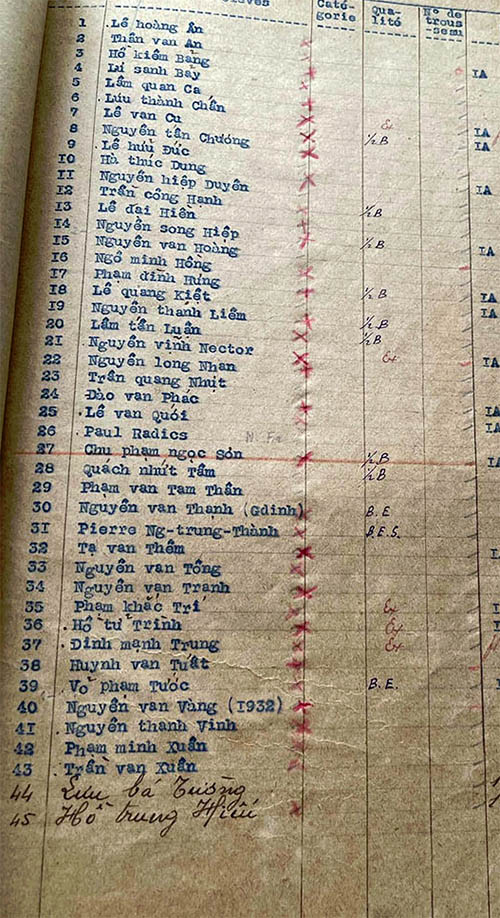 Caté- Qua- N° de
gorie lité trous
-seau
1 .Lê hoàng Ân
2 Thân van An
3 Hồ kiêm Bằng
4 Lư sanh Bảy IA
5 Lâm quan Ca
6 .Lưu thành Chấn
7 Lê van Cu Ex
8 Nguyễn tấn Chương ½ B IA
9 .Lê hưu Đức IA
10 Hà thúc Dung
11 Nguyễn hiệp Duyên
12 Trần công Hanh IA
13 Lê đại Hiền ½ B
14 Nguyễn song Hiệp
15 Nguyễn van Hoàng ½ B IA
16 Ngô minh Hồng
17 Phạm đình Hưng
18 Lê quang Kiệt ½ B IA
19 Nguyễn thanh Liêm IA
20 Lâm tấn Luận ½ B
21 .Nguyễn vinh Nector ½ B
22 Nguyễn long Nhan Ex IA
23 Trần quang Nhựt
24 Đào van Phác
25 .Lê van Quới IA
26 .Paul Radics N.Fr IA
27 Chu phạm ngọc Sơn ½ B IA
28 Quách nhứt Tâm ½ B
29 Phạm van Tam Thân
30 Nguyễn van Thanh (Gdinh) B.E
31 Pierre Ng-trung-Thành B.E.S.
32 Tạ van Thêm
33 Nguyễn van Tông
34 Nguyễn van Tranh
35 Phạm khắc Trí Ex
36 .Hồ tư Trinh Ex
37 .Đinh mạnh Trung Ex
38 Huỳnh van Tuất
39 .Võ phạm Tước B.E.
40 Nguyễn van Vàng (1932)
41 .Nguyễn thanh Vinh
42 Phạm minh Xuân
43 .Trần van Xuân
44 Lưu bá Tường
45 Hồ trung Hiếu